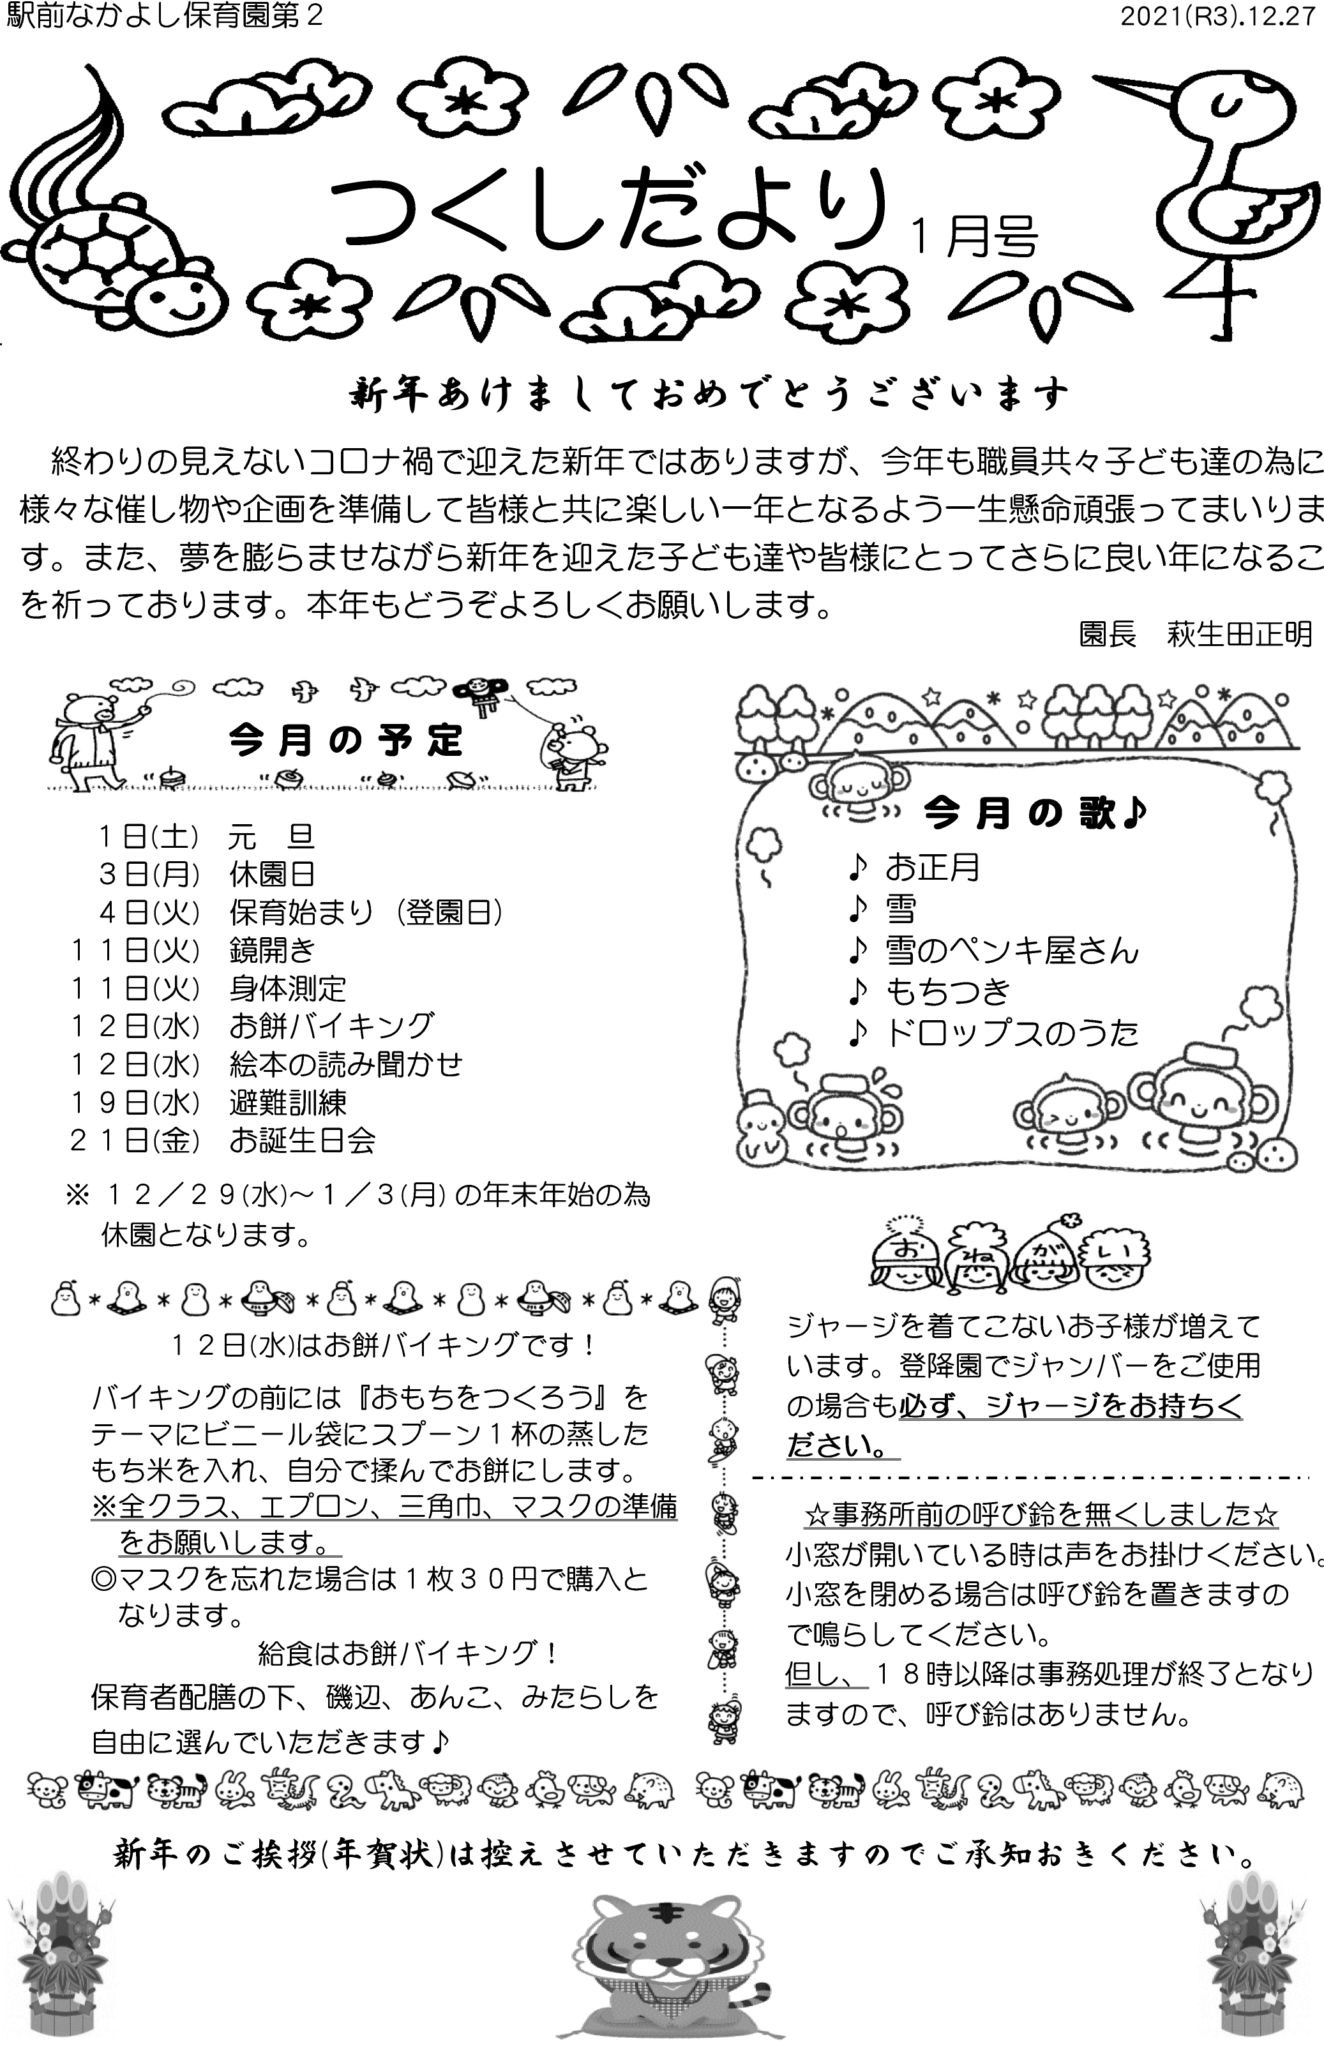 駅前なかよし保育園第２
2021(R3).12.27
つくしだより１月号
新年あけましておめでとうございます
終わりの見えないコロナ禍で迎えた新年ではありますが、今年も職員共々子ども達の為に
様々な催し物や企画を準備して皆様と共に楽しい一年となるよう一生懸命頑張ってまいりま
す。また、夢を膨らませながら新年を迎えた子ども達や皆様にとってさらに良い年になるこ
を祈っております。本年もどうぞよろしくお願いします。
園長　萩生田正明
今月の予定
１日(土)　元　旦
３日(月)　休園日
４日(火)　保育始まり（登園日）
１１日(火)　鏡開き
１１日(火)　身体測定
１２日(水)　お餅バイキング
１２日(水)　絵本の読み聞かせ
１９日(水)　避難訓練
２１日(金)　お誕生日会
※ １２／２９(水)～１／３(月) の年末年始の為
休園となります。
今月の歌♪
♪ お正月
♪ 雪
♪ 雪のペンキ屋さん
♪ もちつき
♪ ドロップスのうた
１２日(水)はお餅バイキングです！
バイキングの前には『おもちをつくろう』を
テーマにビニール袋にスプーン１杯の蒸した
もち米を入れ、自分で揉んでお餅にします。
※全クラス、エプロン、三角巾、マスクの準備
をお願いします。
◎マスクを忘れた場合は１枚３０円で購入と
なります。
給食はお餅バイキング！
保育者配膳の下、磯辺、あんこ、みたらしを
自由に選んでいただきます♪
おねがい
ジャージを着てこないお子様が増えて
います。登降園でジャンバーをご使用
の場合も必ず、ジャージをお持ちく
ださい。
☆事務所前の呼び鈴を無くしました☆
小窓が開いている時は声をお掛けください。
小窓を閉める場合は呼び鈴を置きますの
で鳴らしてください。
但し、１８時以降は事務処理が終了となり
ますので、呼び鈴はありません。
新年のご挨拶(年賀状)は控えさせていただきますのでご承知おきください。